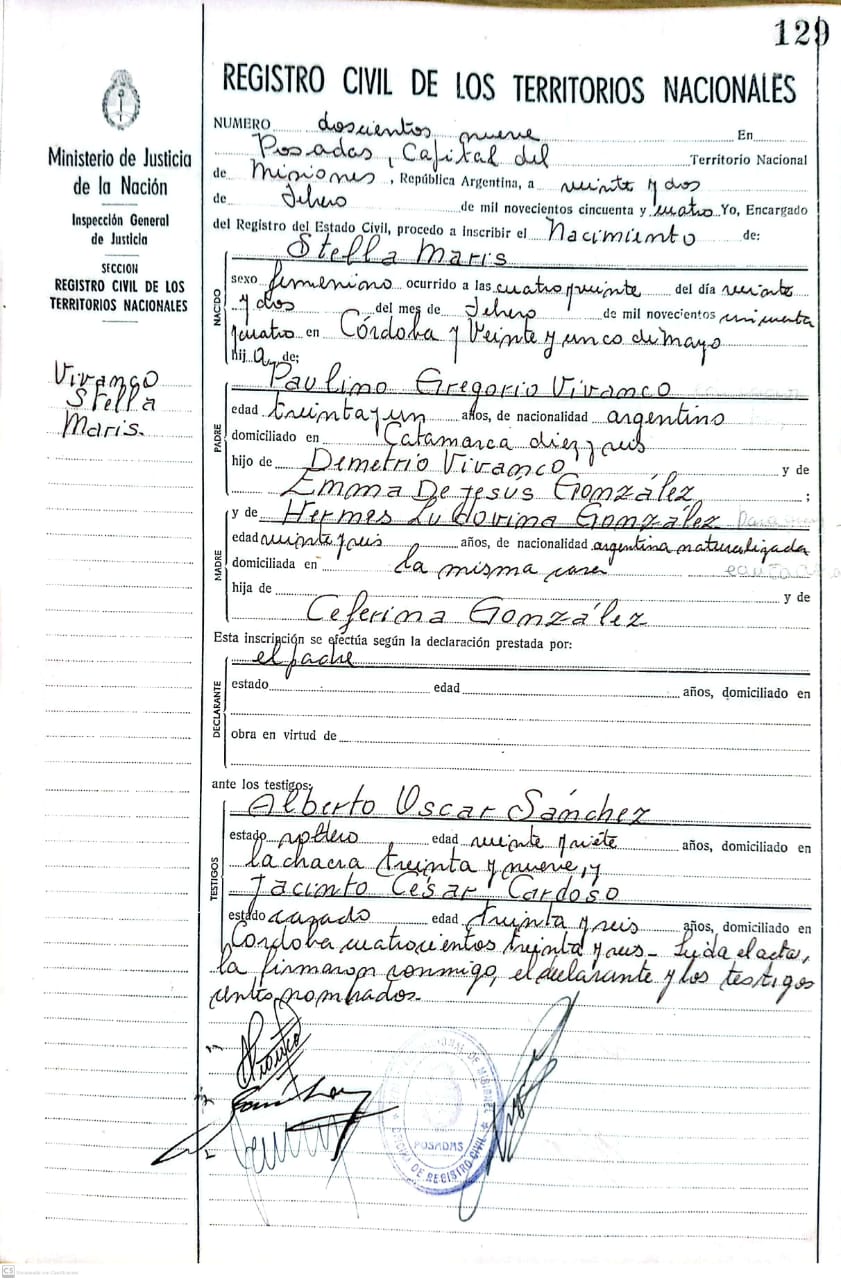 129
REGISTRO CIVIL DE LOS TERRITORIOS NACIONALES
Ministerio de Justicia
de la Nación
Inspección General
de Justicia
SECCION
REGISTRO CIVIL DE LOS
TERRITORIOS NACIONALES
Vivanco
Stella
Maris.
NUMERO doscientos nueve En
Posadas, Capital del Territorio Nacional
de Misiones, República Argentina, a veinte y dos
de febero de mil novecientos cincuenta y cuatro Yo, Encargado
del Registro del Estado Civil, procedo a inscribir el Nacimiento de:
Stella Maris
NACIDO
sexo femenino ocurrido a las cuatro y veinte del día veinte
y dos del mes de febero de mil novecientos cincuenta
y cuatro en Córdoba y Veinte y cinco de Mayo
hija de:
Paulino Gregorio Vivanco
PADRE
edad treinta y un años, de nacionalidad argentino
domiciliado en Catamarca diez y seis
hijo de Demetrio Vivanco y de
Emma De Jesús González ;
y de Hermes Ludovina González
MADRE
edad veinte y seis años, de nacionalidad argentina naturalizada
domiciliada en la misma casa
hija de y de
Ceferina González
Esta inscripción se efectúa según la declaración prestada por:
el padre
DECLARANTE
estado edad años, domiciliado en
obra en virtud de
ante los testigos:
Alberto Oscar Sánchez
TESTIGOS
estado soltero edad veinte y siete años, domiciliado en
la chacra treinta y nueve, y
Jacinto César Cardoso
estado casado edad treinta y seis años, domiciliado en
Córdoba cuatrocientos treinta y seis - Leida el acta,
la firmaron conmigo, el declarante y los testigos
antes nombrados.
POSADAS
OFICINA DE REGISTRO CIVIL
CS